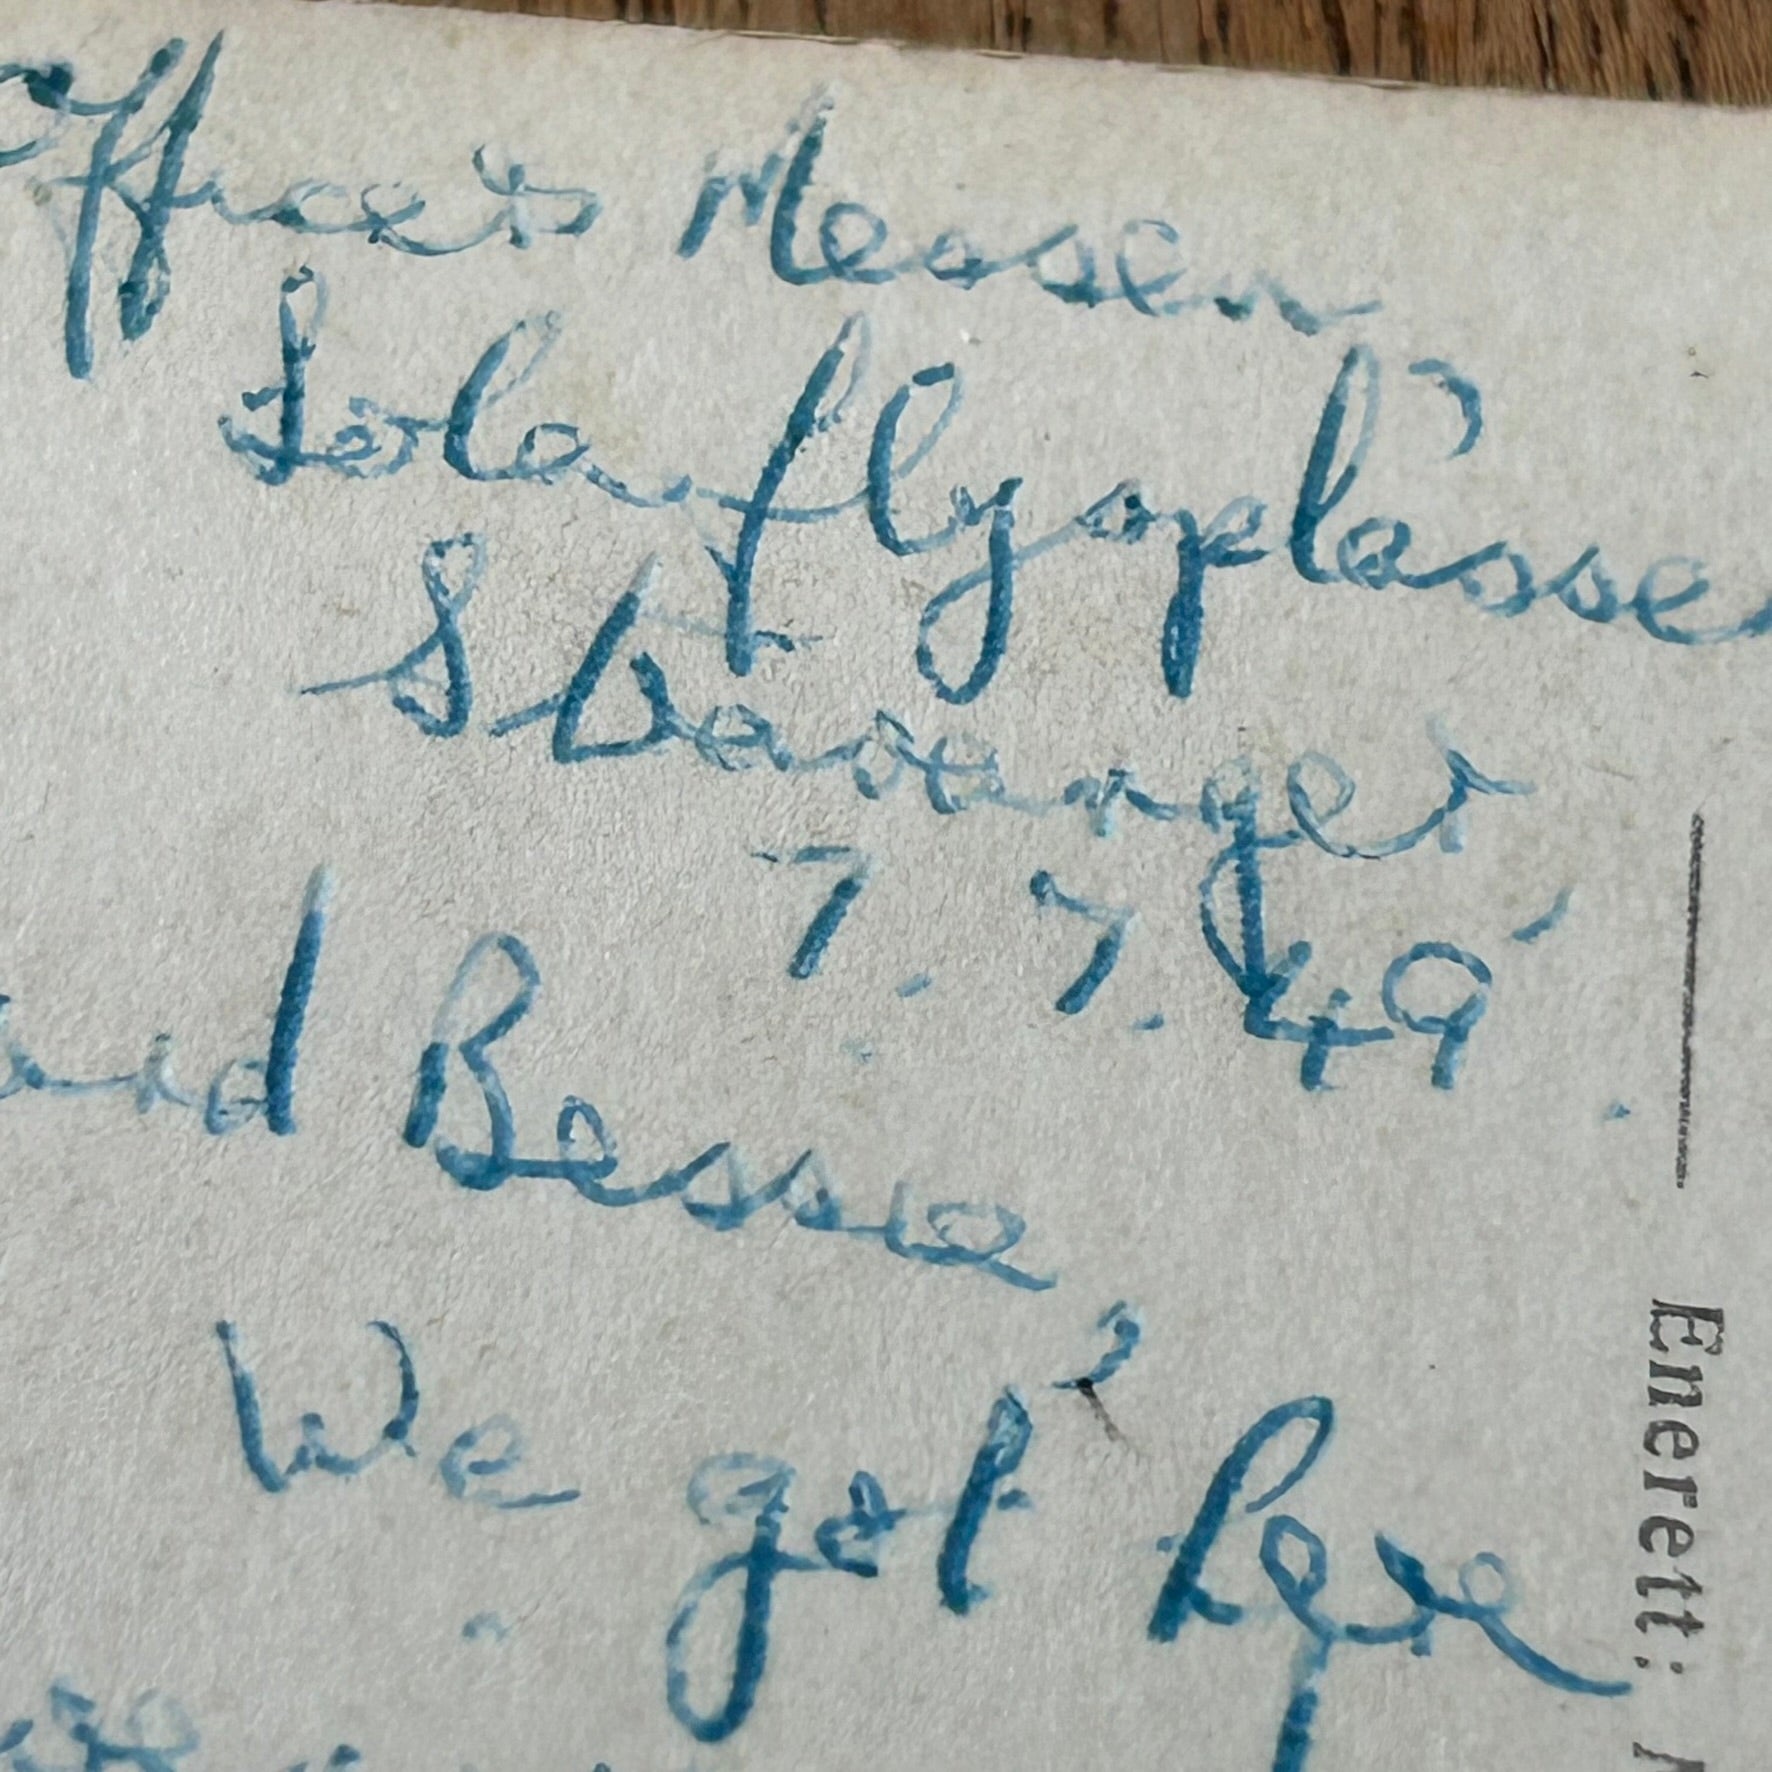 Officers Messen
Sola flyplassen
Stavanger
7. 7. 49.
and Bessie,
We got here
Enerett: